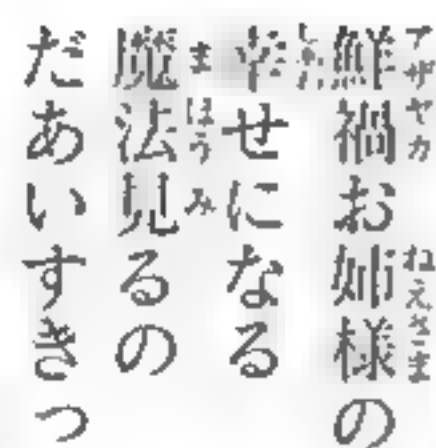 鮮禍お姉様の
幸せになる
魔法見るの
だあいすきっ